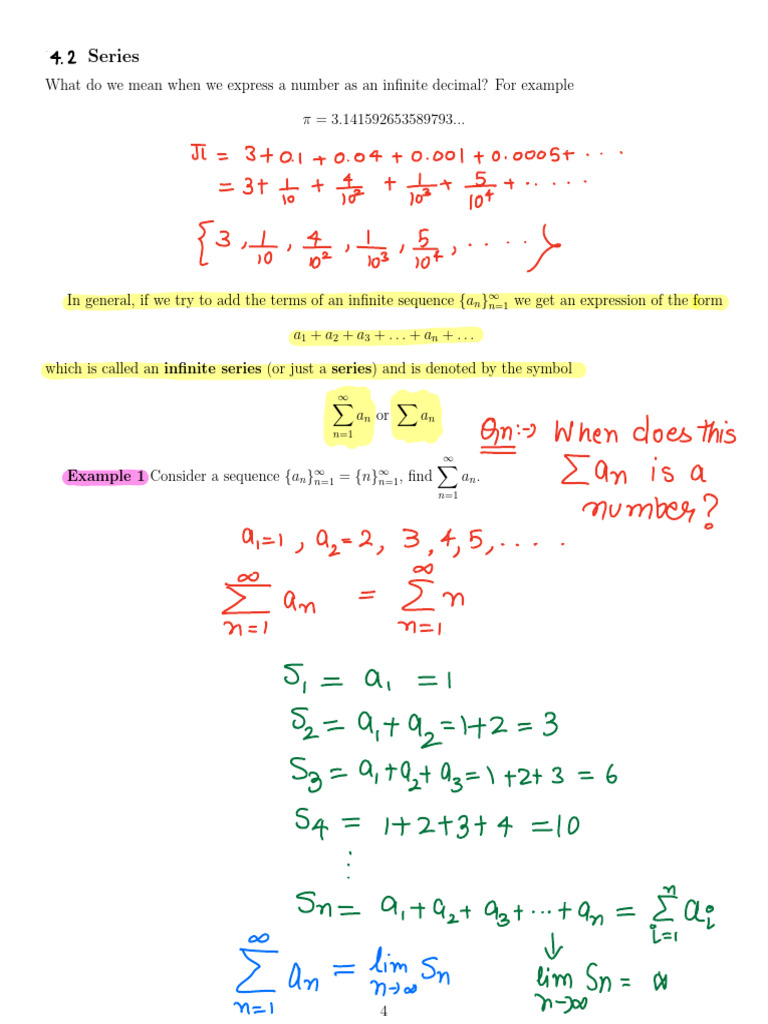 4.2 Series
What do we mean when we express a number as an infinite decimal? For example
π = 3.141592653589793...
π = 3 + 0.1 + 0.04 + 0.001 + 0.0005 + ···
= 3 + 1/10 + 4/10² + 1/10³ + 5/10⁴ + ·····
{3, 1/10, 4/10², 1/10³, 5/10⁴, ····}
In general, if we try to add the terms of an infinite sequence {aₙ}∞ₙ₌₁ we get an expression of the form
a₁ + a₂ + a₃ + ... + aₙ + ...
which is called an infinite series (or just a series) and is denoted by the symbol
∞∑ₙ₌₁ aₙ or ∑ aₙ
Qn:-> When does this
∑ aₙ is a
number?
Example 1 Consider a sequence {aₙ}∞ₙ₌₁ = {n}∞ₙ₌₁, find ∞∑ₙ₌₁ aₙ.
a₁=1, a₂=2, 3, 4, 5, ····
∞∑ₙ₌₁ aₙ = ∞∑ₙ₌₁ n
S₁ = a₁ = 1
S₂ = a₁ + a₂ = 1+2 = 3
S₃ = a₁ + a₂ + a₃ = 1+2+3 = 6
S₄ = 1+2+3+4 = 10
⋮
Sₙ = a₁ + a₂ + a₃ + ··· + aₙ = ⁿ∑ᵢ₌₁ aᵢ
↓
∞∑ₙ₌₁ aₙ = lim n→∞ Sₙ
lim n→∞ Sₙ = ∞
4